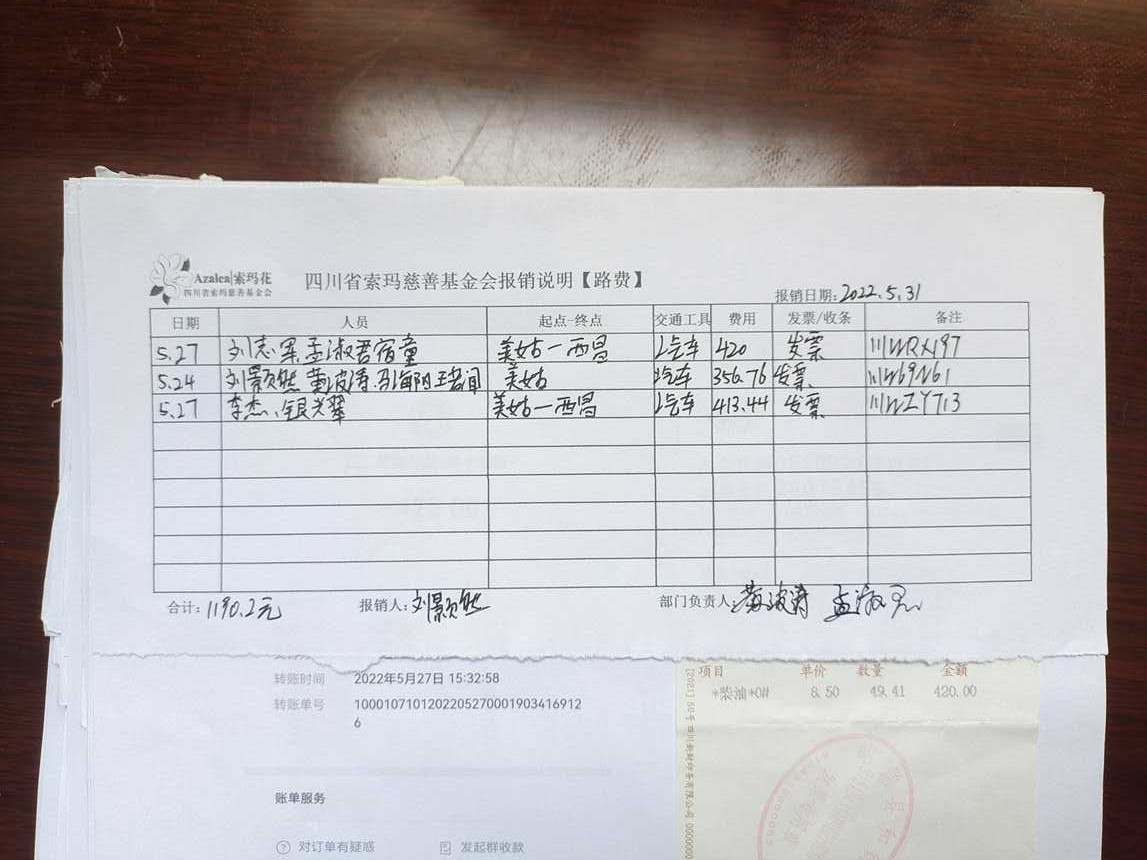 Azalea|索玛花
四川省索玛慈善基金会
四川省索玛慈善基金会报销说明【路费】
报销日期:2022.5.31
日期 人员 起点-终点 交通工具 费用 发票/收条 备注
5.27 刘志军孟淑君宿童 美姑一西昌 汽车 420 发票 川WRX197
5.24 刘颢然 黄波涛 马海阿 美姑 汽车 356.76 发票 川W69N61
5.27 李杰、银兴翠 美姑一西昌 汽车 413.44 发票 川WZY713
合计:1190.2元 报销人:刘颢然 部门负责人:黄波涛 孟淑君
转账时间 2022年5月27日 15:32:58
转账单号 100010710120220527000190341 6912
6
账单服务
对订单有疑惑 发起群收款
项目 单价 数量 金额
*柴油*0# 8.50 49.41 420.00